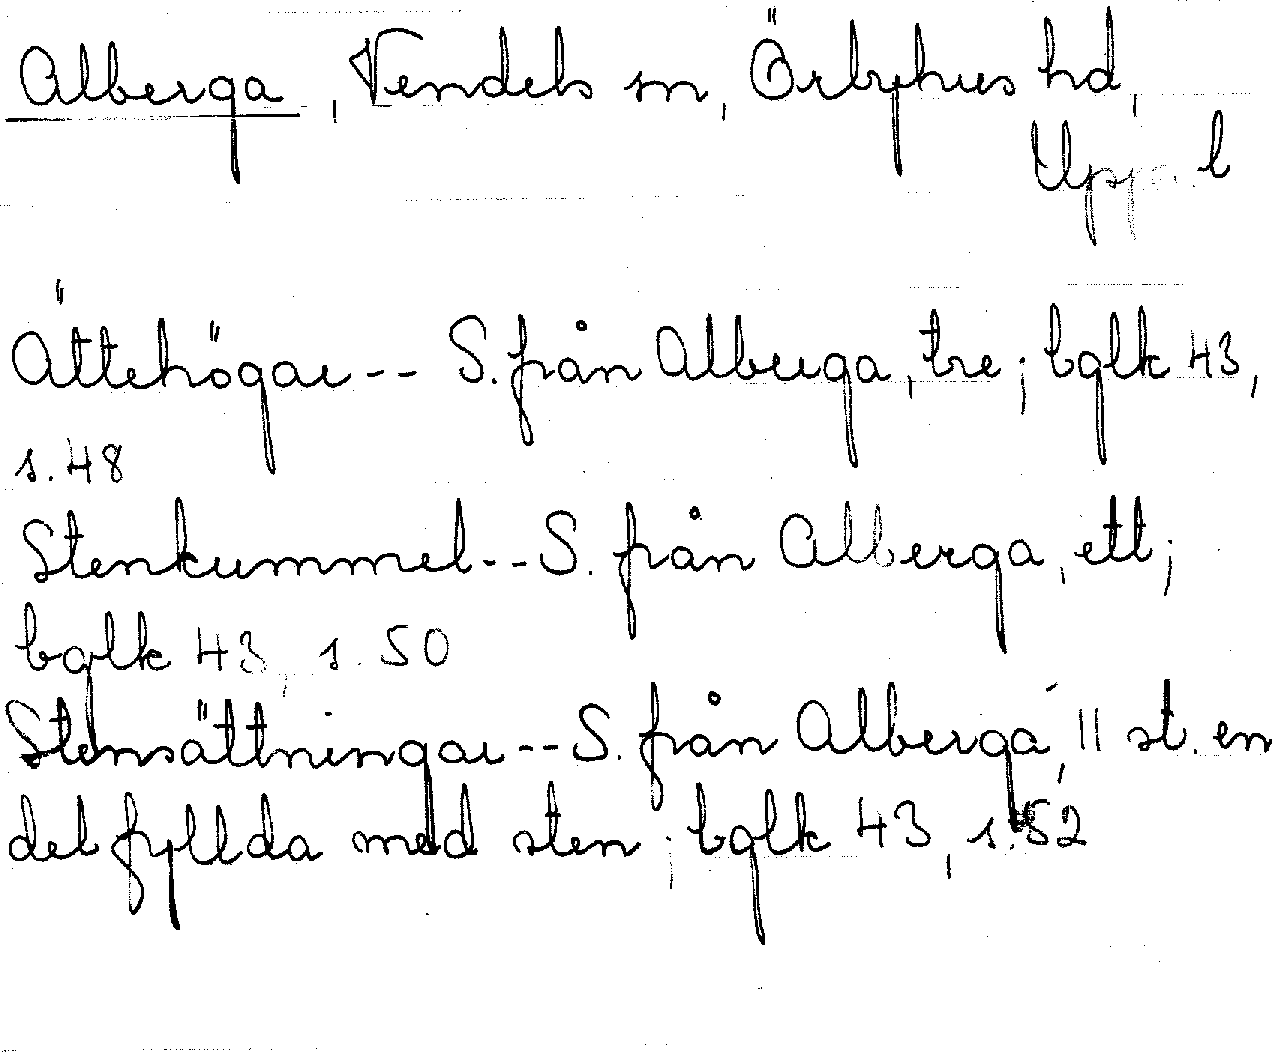 Alberga, Vendels sn, Örbyhus hd,
Upps. l
Ättehögar -- S. från Alberga, tre; bglk 43,
s. 48
Stenkummel -- S. från Alberga, ett;
bglk 43, s. 50
Stensättningar -- S. från Alberga, 11 st. en
del fyllda med sten; bglk 43, s. 52